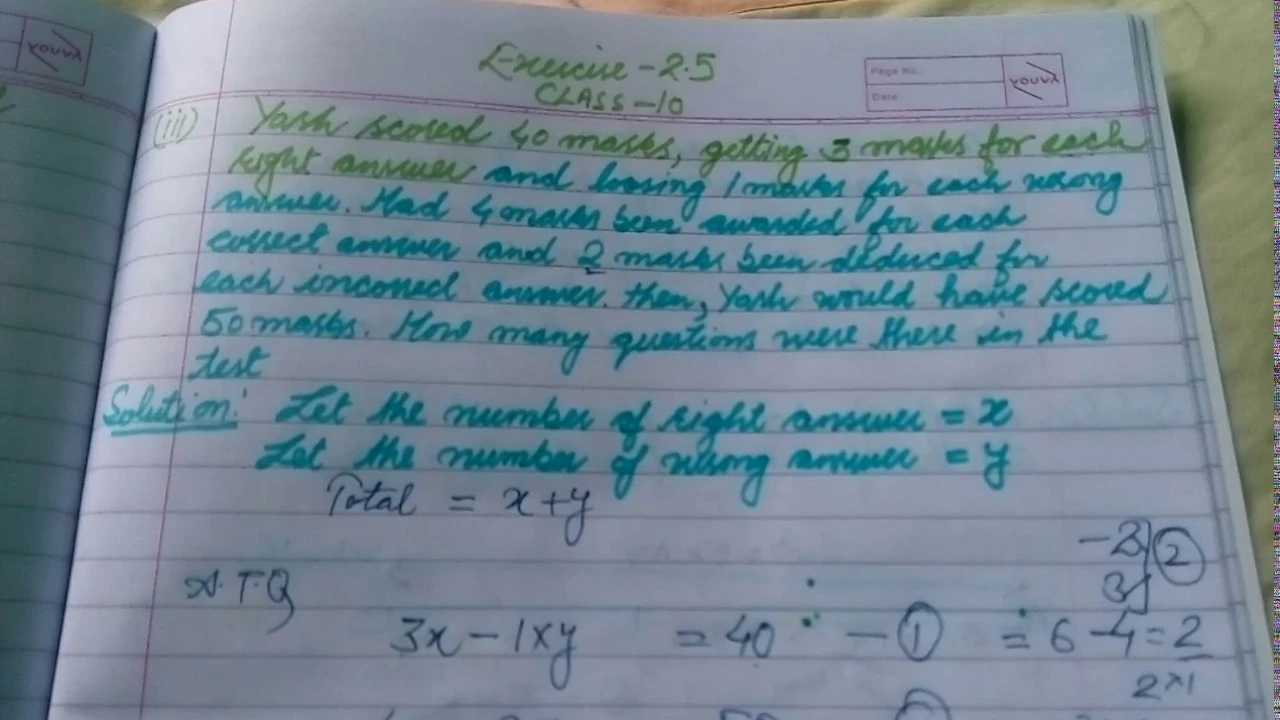 YOUVA
Exercise-2.5
CLASS-10
Page No.:
Date:
YOUVA
(iii) Yash scored 40 marks, getting 3 marks for each
right answer and loosing 1 marks for each wrong
answer. Had 4 marks been awarded for each
correct answer and 2 marks been deduced for
each incorrect answer. then, Yash would have scored
50 marks. How many questions were there in the
test
Solution: Let the number of right answer = x
Let the number of wrong answer = y
Total = x+y
A.T.Q
3x - 1xy = 40 - ① = 6 - 4 = 2
2x1